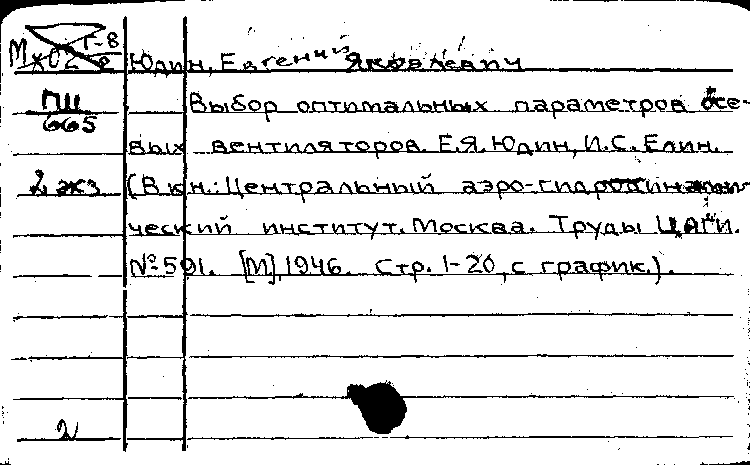 Г-8
Юдин, Евгений Яковлевич
ПШ
665
Выбор оптимальных параметров осе-
вых вентиляторов. Е.Я. Юдин, И.С. Елин.
2 экз
(В кн.: Центральный аэро-гидродинами-
ческий институт. Москва. Труды ЦАГИ.
№ 591. [М], 1946. Стр. 1-20, с график.).
2